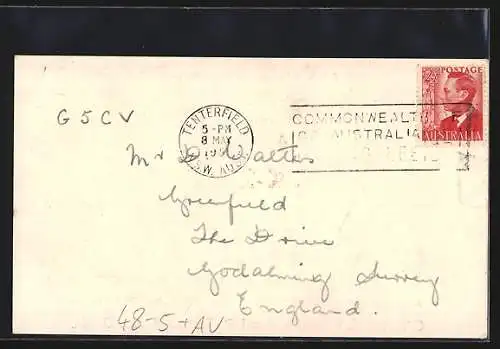 G5CV
TENTERFIELD
5-PM
8 MAY
N.S.W. AUST
COMMONWEALTH
OF AUSTRALIA
POSTAGE
AUSTRALIA
Mr D. Walters
Greenfield
The Drive
Godalming Surrey
England.
48-5+AV